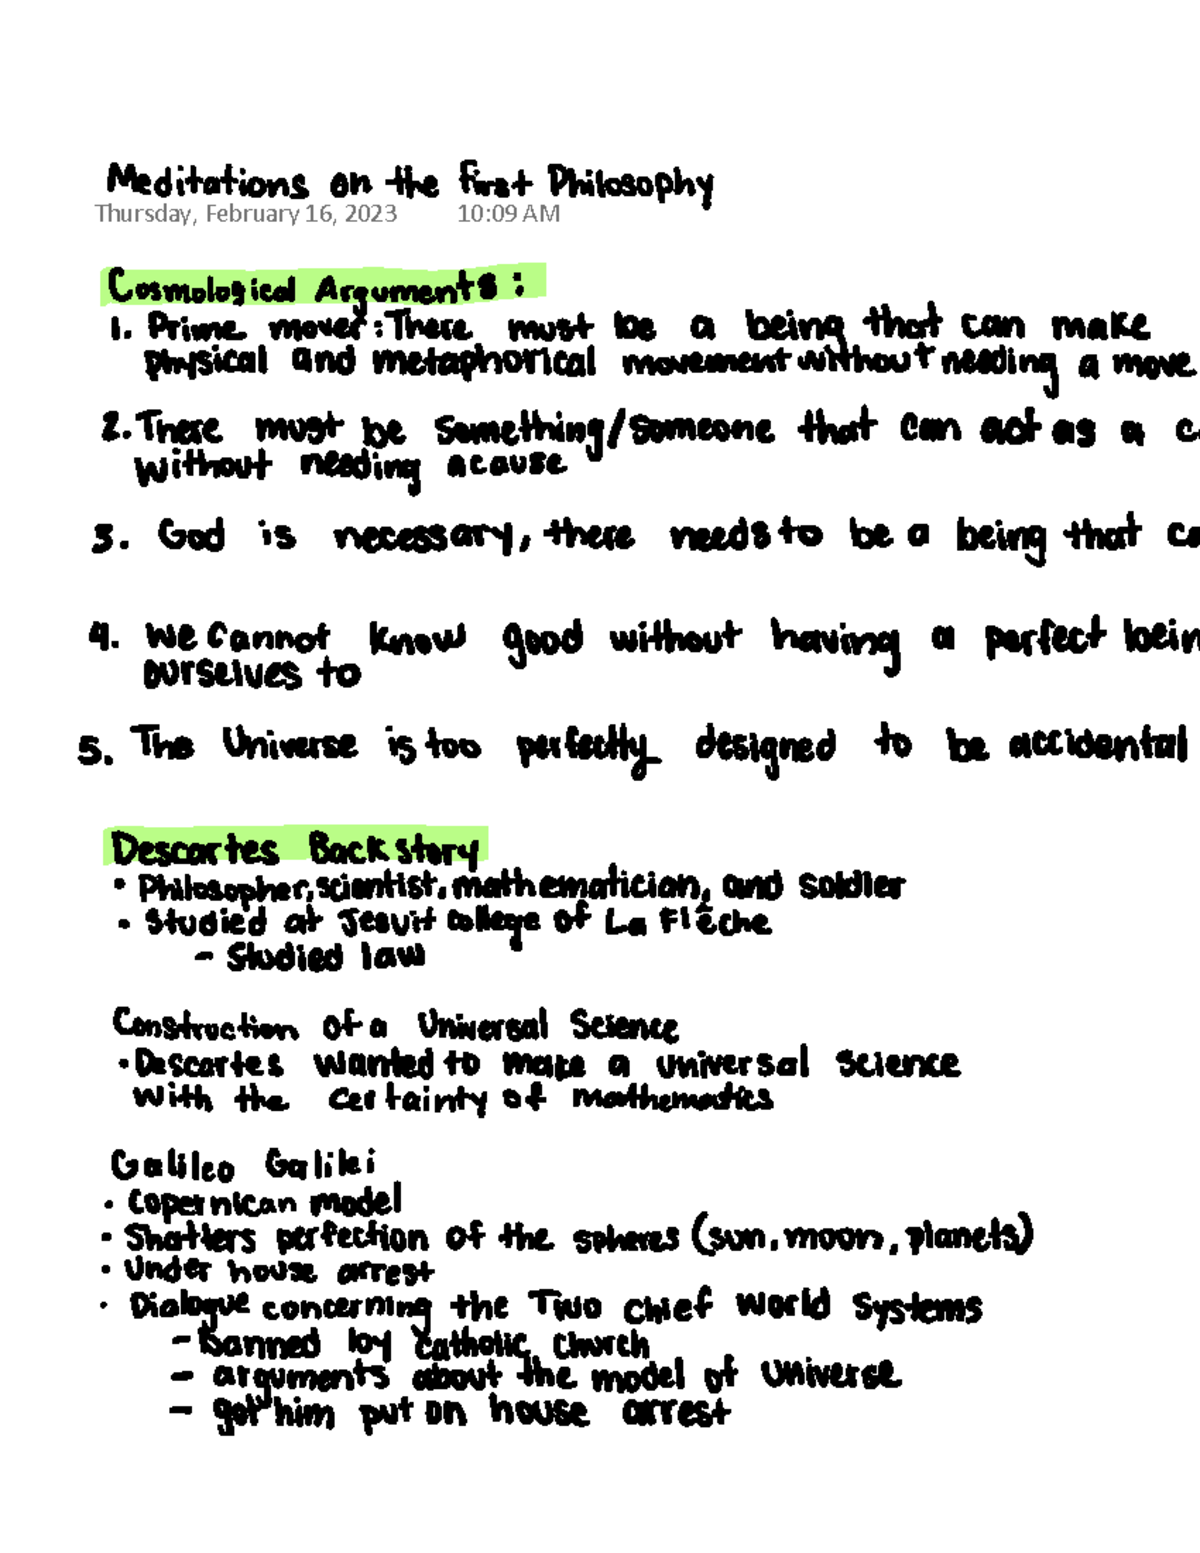 Meditations on the First Philosophy
Thursday, February 16, 2023 10:09 AM
Cosmological Arguments:
1. Prime mover: There must be a being that can make
physical and metaphorical movement without needing a move
2. There must be something/someone that can act as a c
without needing a cause
3. God is necessary, there needs to be a being that ca
4. We cannot know good without having a perfect bein
ourselves to
5. The Universe is too perfectly designed to be accidental
Descartes Backstory
• Philosopher, scientist, mathematician, and soldier
• Studied at Jesuit college of La Flêche
- Studied law
Construction of a Universal Science
• Descartes wanted to make a universal science
with the certainty of mathematics
Galileo Galilei
• Copernican model
• Shatters perfection of the spheres (sun, moon, planets)
• Under house arrest
• Dialogue concerning the Two Chief World Systems
- Banned by Catholic Church
- arguments about the model of Universe
- got him put on house arrest